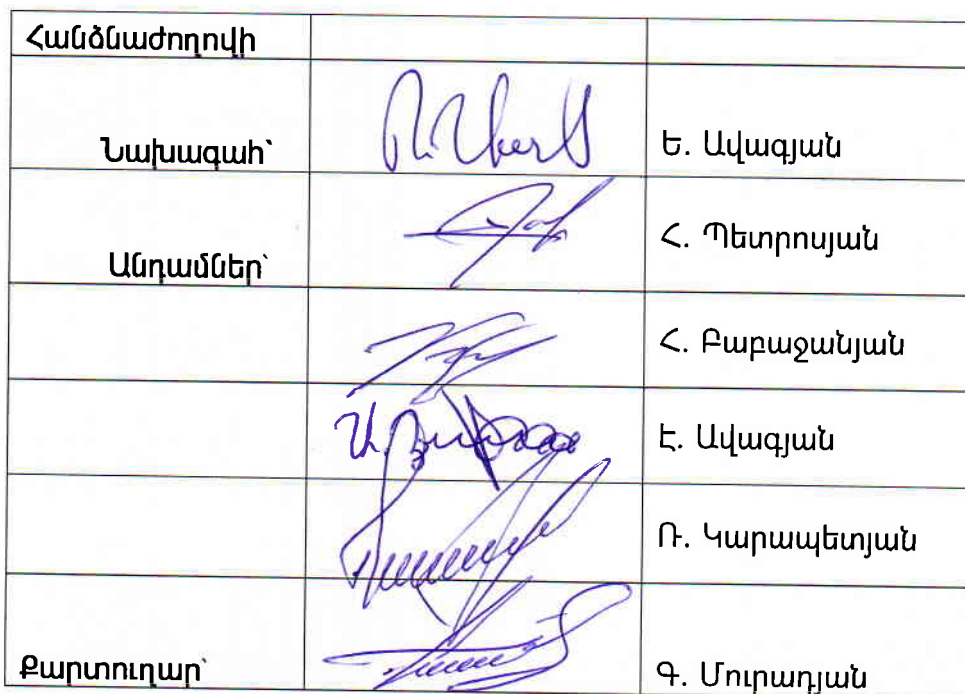 Հանձնաժողովի
Նախագահ՝ Ե. Ավագյան
Անդամներ՝ Հ. Պետրոսյան
Հ. Բաբաջանյան
Է. Ավագյան
Ռ. Կարապետյան
Քարտուղար՝ Գ. Մուրադյան